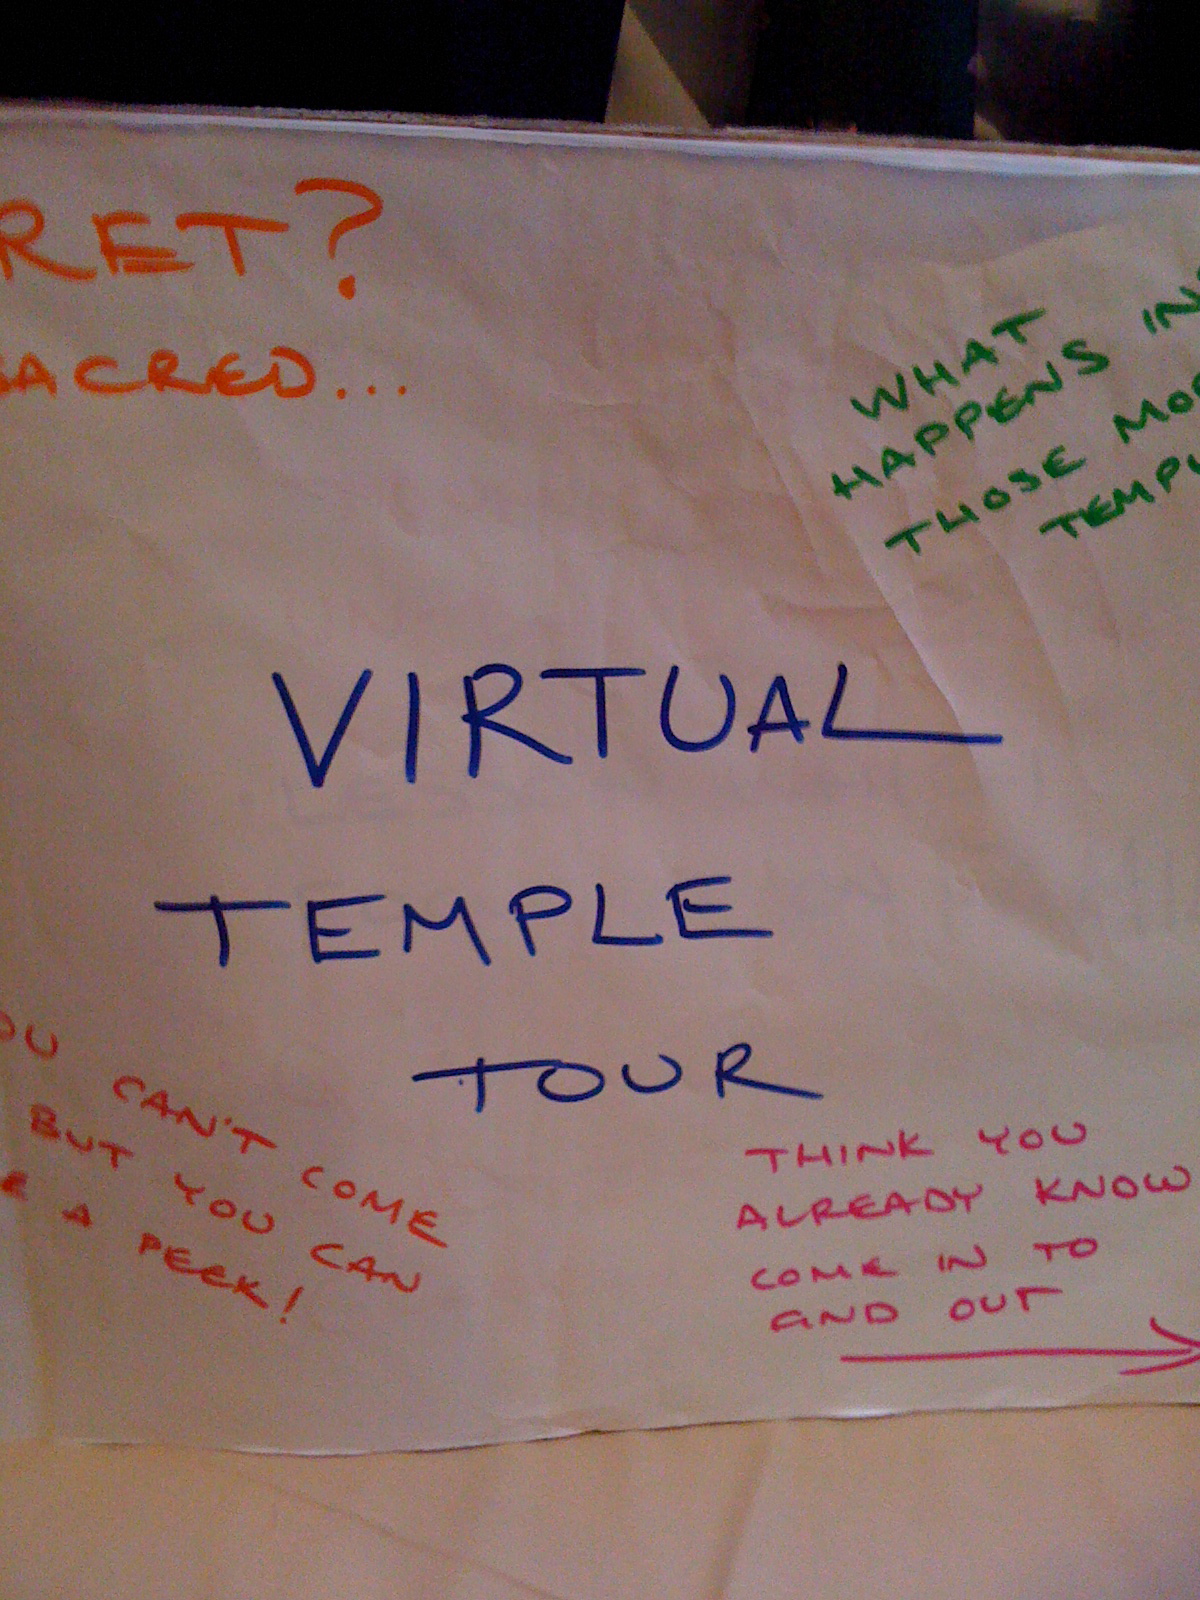 RET?
SACRED...
WHAT
HAPPENS IN
THOSE MO
TEMPL
VIRTUAL
TEMPLE
TOUR
OU CAN'T COME
BUT YOU CAN
E A PEEK!
THINK YOU
ALREADY KNOW
COME IN TO
GIND OUT